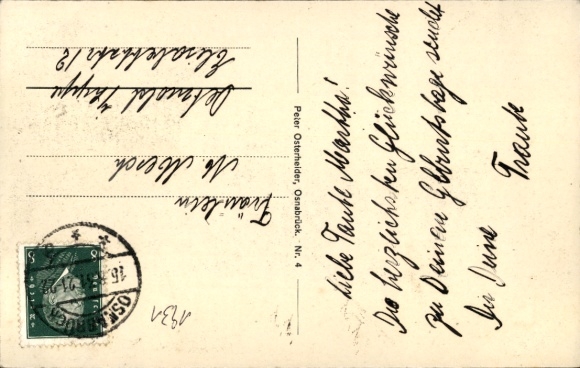 Liebe Tante Martha!
Die herzlichsten Glückwünsche
zu Deinem Geburtstage sendet
Dir Deine
Traute
Peter Osterheider, Osnabrück. Nr. 4
Fräulein
M. Mesch
Detmold Lippe
Elisabethstr 12
1931
8 8
OSNABRÜCK